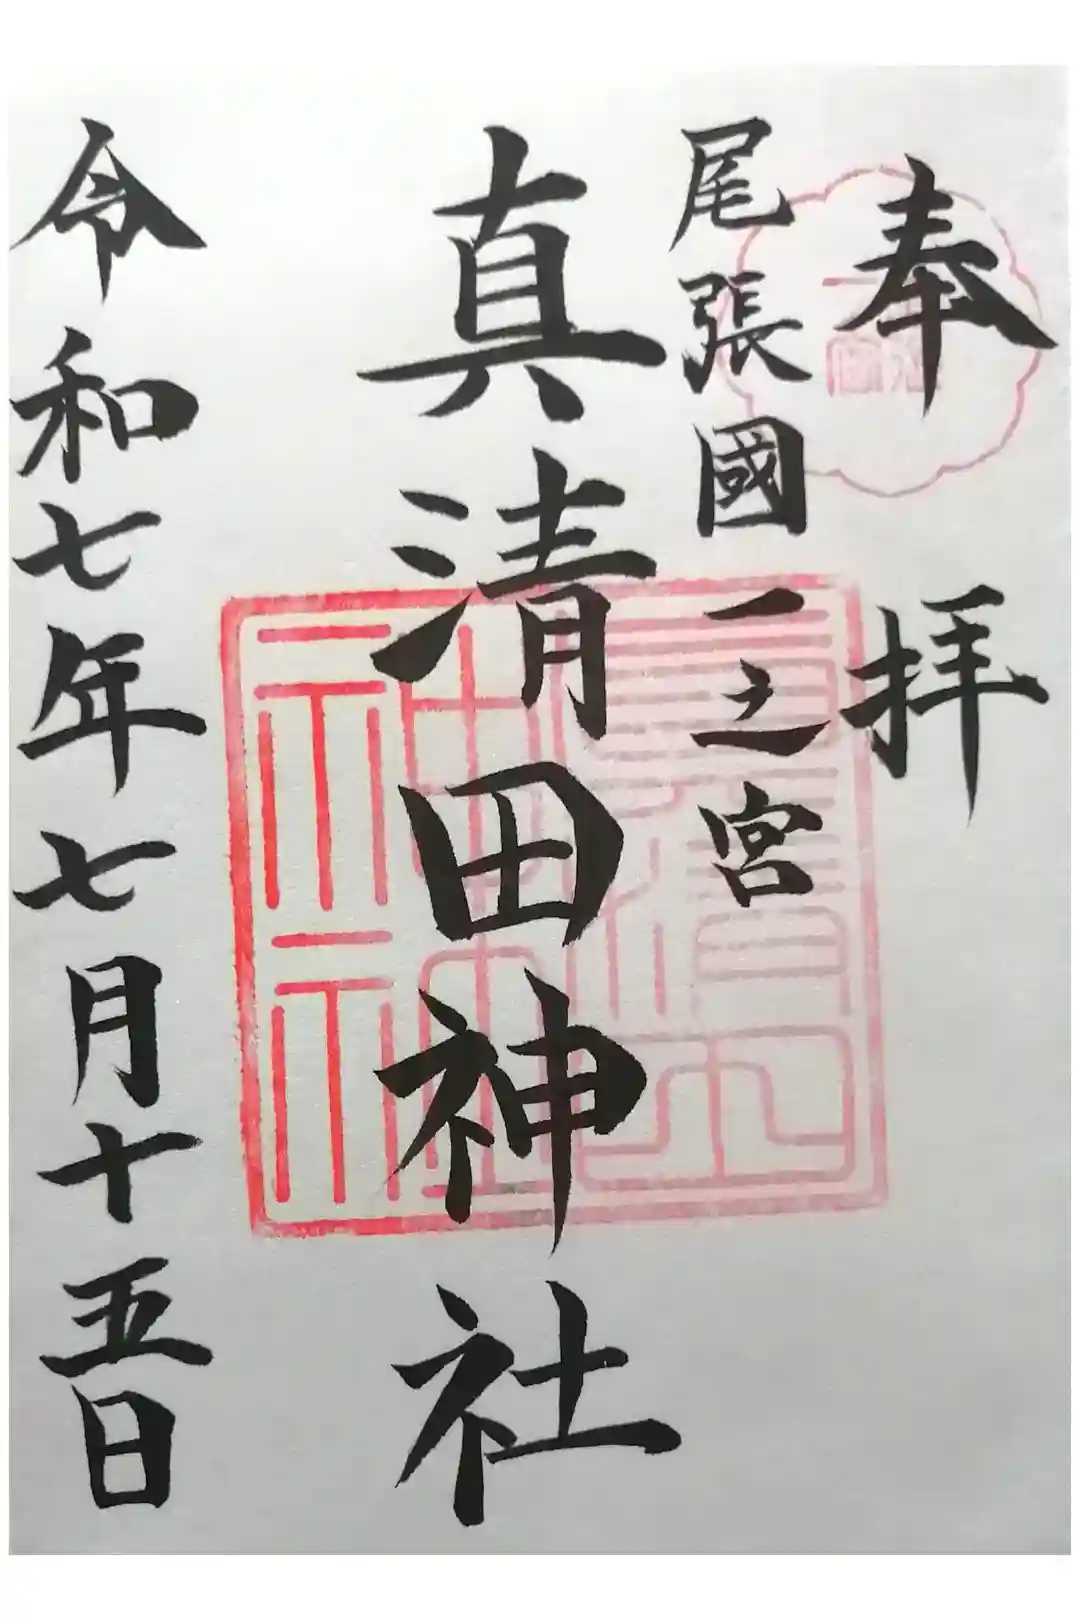 奉拝
尾張國一之宮
真清田神社
令和七年七月十五日